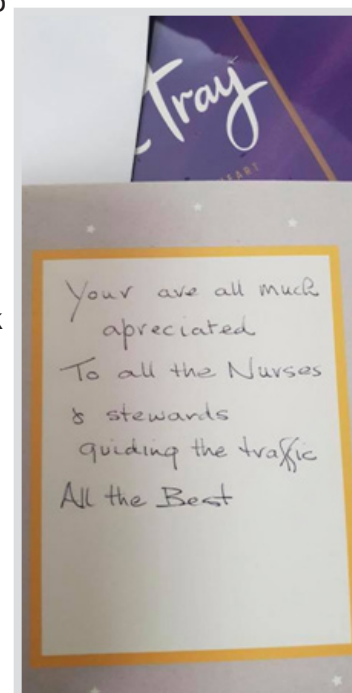 Tray
HEART
Your are all much
apreciated
To all the Nurses
& stewards
guiding the traffic
All the Best